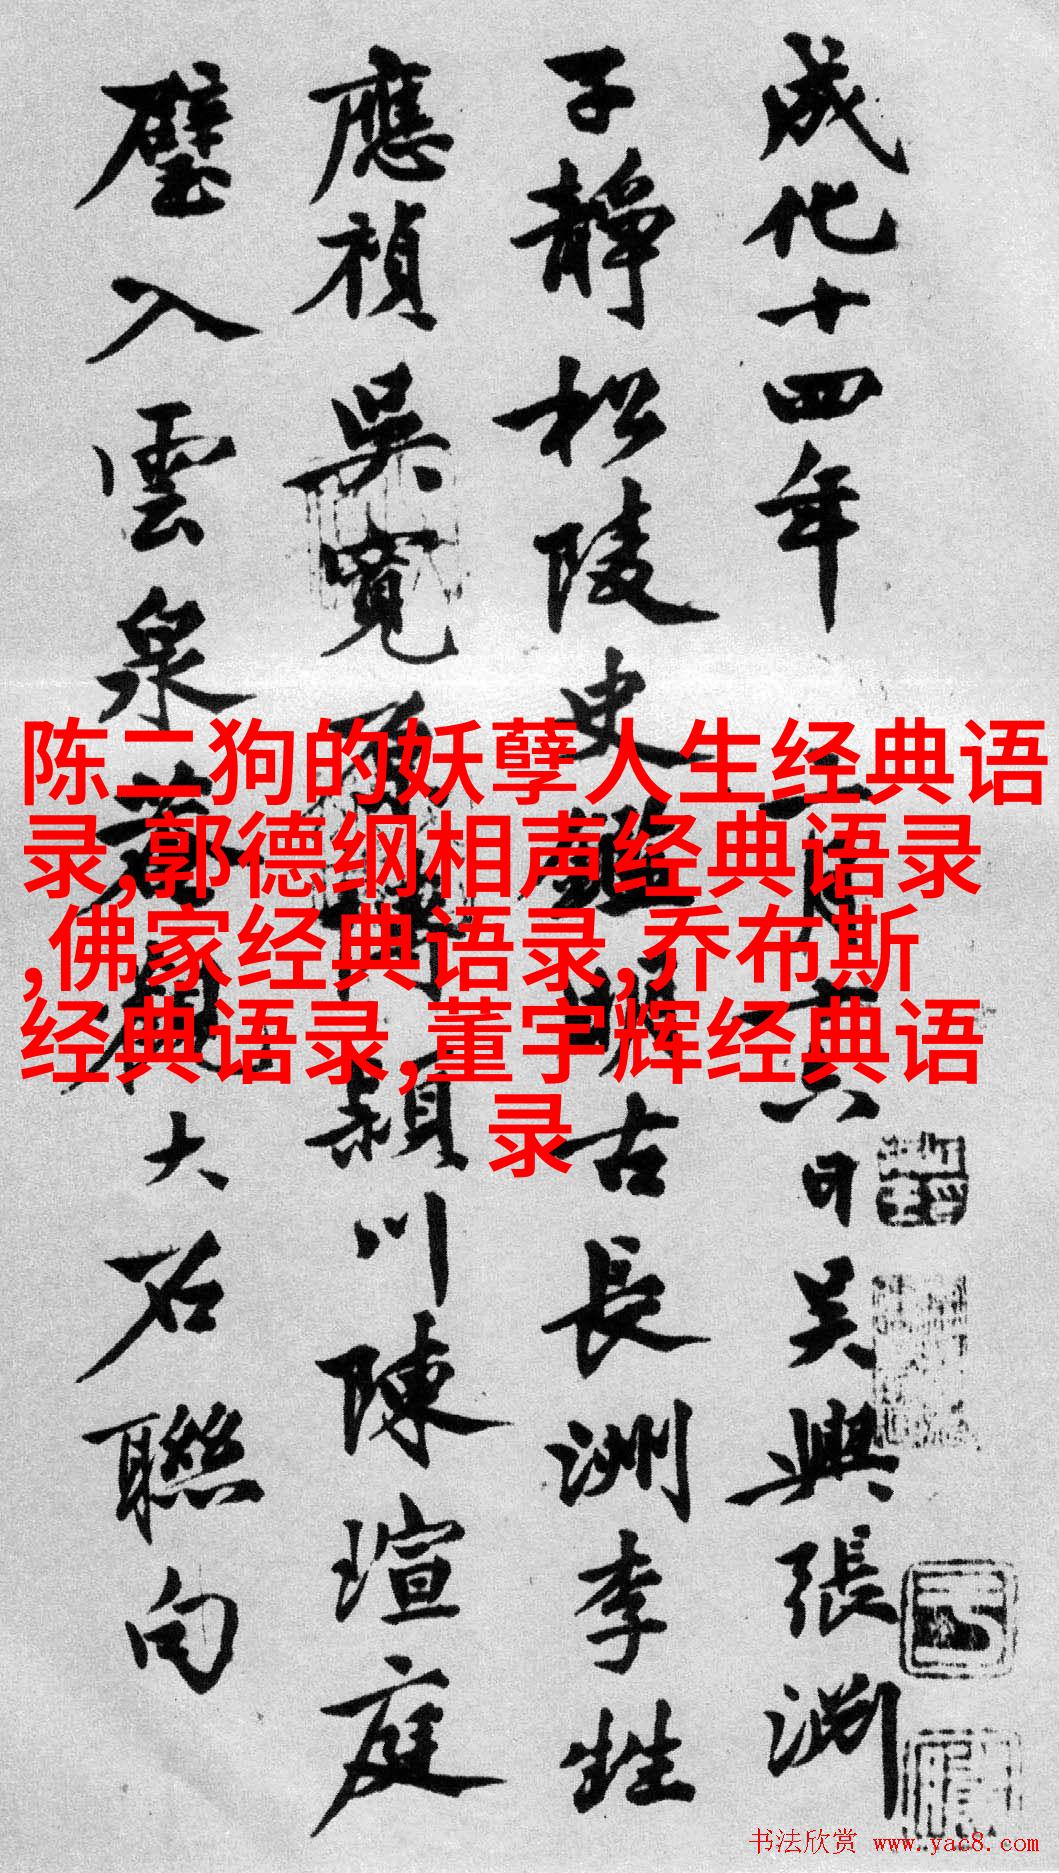 成化十四年二月六日吴興張渊
子静松陵史鑑明古長洲李甡
應禎吴寛原博潁川陳瑄庭
璧入雲泉菴觀大石聯句
陈二狗的妖孽人生经典语
录,郭德纲相声经典语录
,佛家经典语录,乔布斯
经典语录,董宇辉经典语
录
书法欣赏 www.yac8.com